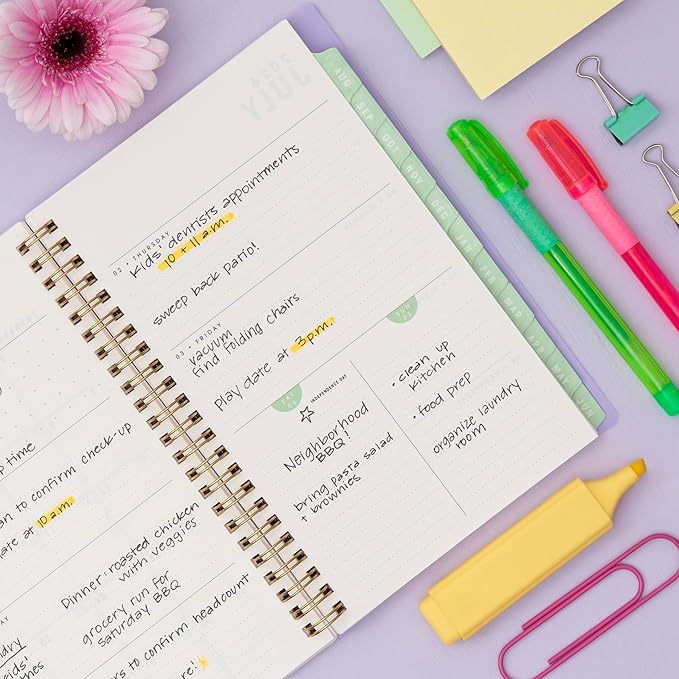 p time
to confirm check-up
at 10 a.m.
Dinner: roasted chicken
with veggies
grocery run for
Saturday BBQ
to confirm headcount
JULY
02 • THURSDAY
Kids' dentists appointments
10 + 11 a.m.
sweep back patio!
03 • FRIDAY
vacuum
find folding chairs
Play date at 3 p.m.
SAT
04
INDEPENDENCE DAY
Neighborhood
BBQ!
bring pasta salad
+ brownies
SUN
05
• clean up
kitchen
• food prep
organize laundry
room
AUG
SEP
OCT
NOV
DEC
JAN
FEB
MAR
APR
MAY
JUN